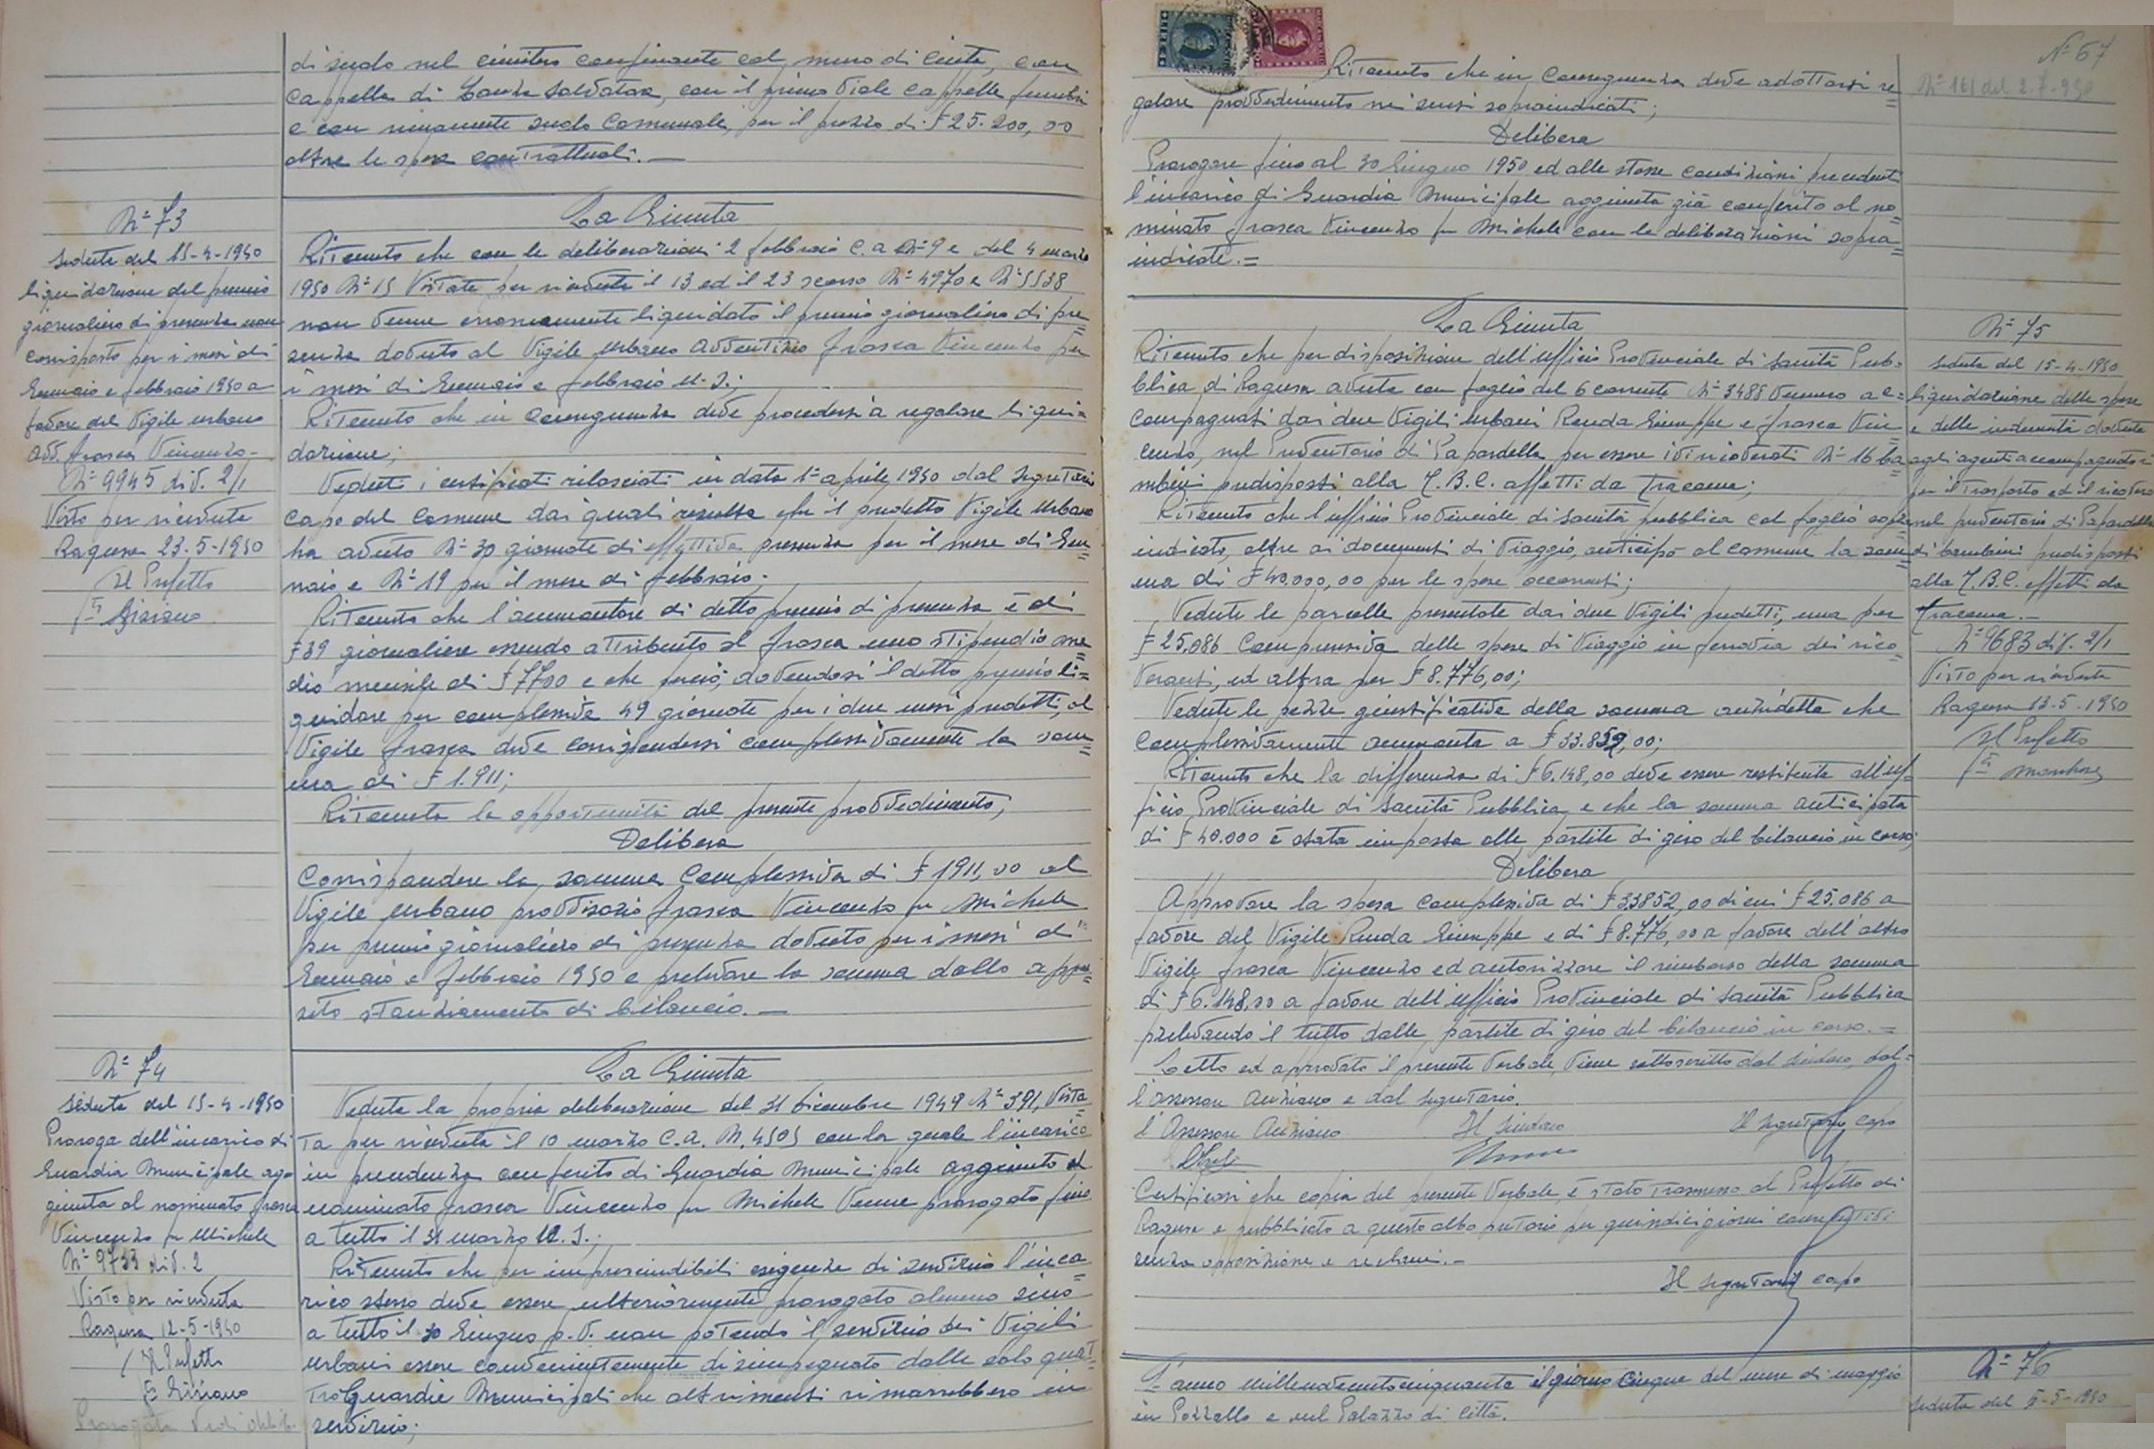 di suolo nel cimitero confinante col muro di cinta, con
cappella di Salvatore, con il primo viale cappelle funebri
e con rimanente suolo Comunale, per il prezzo di £ 25.200,00
oltre le spese contrattuali. —
N° 73
Seduta del 15-4-1950
liquidazione del premio
giornaliero di presenza non
corrisposto per i mesi di
Gennaio e febbraio 1950 a
favore del Vigile urbano
avv. Frasca Vincenzo -
N° 9945 div. 2/1
Visto per ricevuta
Ragusa 23-5-1950
Il Prefetto
La Giunta
Ritenuto che con le deliberazioni 2 febbraio c.a. N° 9 e del 4 marzo
1950 N° 15 Vistate per ricevuta il 13 ed il 23 scorso N° 4970 e N° 5538
non venne erroneamente liquidato il premio giornaliero di pre=
senza dovuto al Vigile Urbano Avventizio Frasca Vincenzo per
i mesi di Gennaio e febbraio u.s.;
Ritenuto che in conseguenza deve procedersi a regolare liqui=
dazione;
Veduti i certificati rilasciati in data 1° aprile 1950 dal Segretario
Capo del Comune dai quali risulta che il predetto Vigile Urbano
ha avuto N° 30 giornate di effettiva presenza per il mese di Gen=
naio e N° 19 per il mese di febbraio;
Ritenuto che l'ammontare di detto premio di presenza è di
£ 39 giornaliere essendo attribuito al Frasca uno stipendio me=
dio mensile di £ 7700 e che perciò, dovendosi il detto premio li=
quidare per complessive 49 giornate per i due mesi predetti, al
Vigile Frasca deve corrispondersi complessivamente la som=
ma di £ 1.911;
Ritenuta la opportunità del presente provvedimento;
Delibera
Corrispondere la somma complessiva di £ 1911,00 al
Vigile Urbano provvisorio Frasca Vincenzo fu Michele
per premio giornaliero di presenza dovuto per i mesi di
Gennaio e febbraio 1950 e prelevare la somma dallo appo=
sito stanziamento di bilancio. —
N° 74
Seduta del 15-4-1950
Proroga dell'incarico di
Guardia Municipale ag=
giunta al nominato Frasca
Vincenzo fu Michele
N° 9733 div. 2
Visto per ricevuta
Ragusa 12-5-1950
Il Prefetto
Prorogata Vedi
La Giunta
Veduta la propria deliberazione del 31 Dicembre 1949 N° 391, Vista=
ta per ricevuta il 10 marzo c.a. N. 4505 con la quale l'incarico
in precedenza conferito di Guardia Municipale aggiunto al
nominato Frasca Vincenzo fu Michele venne prorogato fino
a tutto il 31 marzo u.s.;
Ritenuto che per imprescindibili esigenze di servizio l'inca=
rico stesso deve essere ulteriormente prorogato almeno sino
a tutto il 30 Giugno p.v. non potendo il servizio dei Vigili
Urbani essere convenientemente disimpegnato dalle sole quat=
tro Guardie Municipali che altrimenti rimarrebbero in
servizio;
N° 67
N° 161 del 2-7-950
Ritenuto che in conseguenza deve adottarsi re=
golare provvedimento nei sensi sopraindicati;
Delibera
Prorogare fino al 30 Giugno 1950 ed alle stesse condizioni precedenti
l'incarico di Guardia Municipale aggiunta già conferito al no=
minato Frasca Vincenzo fu Michele con le deliberazioni sopra=
indicate. =
La Giunta
Ritenuto che per disposizione dell'Ufficio Provinciale di Sanità Pub=
blica di Ragusa avuta con foglio del 6 corrente N° 3488 vennero ac=
compagnati dai due Vigili Urbani Renda Giuseppe e Frasca Vin=
cenzo, nel Preventorio di Papardella per essere ivi ricoverati N° 16 ba=
mbini predisposti alla T.B.C. affetti da tracoma;
Ritenuto che l'Ufficio Provinciale di Sanità pubblica col foglio sopra
indicato, oltre ai documenti di viaggio, anticipò al comune la som=
ma di £ 40.000,00 per le spese occorrenti;
Vedute le parcelle presentate dai due Vigili predetti, una per
£ 25.086 comprensiva delle spese di viaggio in ferrovia dei rico=
verati, ed altra per £ 8.776,00;
Vedute le pezze giustificative della somma anzidetta che
complessivamente ammonta a £ 33.852,00;
Ritenuto che la differenza di £ 6.148,00 deve essere restituita all'Uf=
ficio Provinciale di Sanità Pubblica e che la somma anticipata
di £ 40.000 è stata imposta alle partite di giro del bilancio in corso;
Delibera
Approvare la spesa complessiva di £ 33852,00 di cui £ 25.086 a
favore del Vigile Renda Giuseppe e di £ 8.776,00 a favore dell'altro
Vigile Frasca Vincenzo ed autorizzare il rimborso della somma
di £ 6.148,00 a favore dell'Ufficio Provinciale di Sanità Pubblica
prelevando il tutto dalle partite di giro del bilancio in corso. =
Letto ed approvato il presente verbale, viene sottoscritto dal Sindaco, dal=
l'Assessore Anziano e dal Segretario.
L'Assessore Anziano Il Sindaco Il Segretario Capo
Certificasi che copia del presente Verbale è stato trasmesso al Prefetto di
Ragusa e pubblicato a questo albo pretorio per quindici giorni consecutivi
senza opposizione e reclami. -
Il Segretario Capo
N° 75
Seduta del 15-4-1950
liquidazione delle spese
e delle indennità dovute
agli agenti accompagnatori
per il trasporto ed il ricovero
nel preventorio di Papardella
di bambini predisposti
alla T.B.C. affetti da
tracoma. -
N° 9683 div. 2/1
Visto per ricevuta
Ragusa 13-5-1950
Il Prefetto
L'anno millenovecentocinquanta il giorno cinque del mese di maggio
in Pozzallo e nel Palazzo di Città.
N° 76
Seduta del 5-5-1950